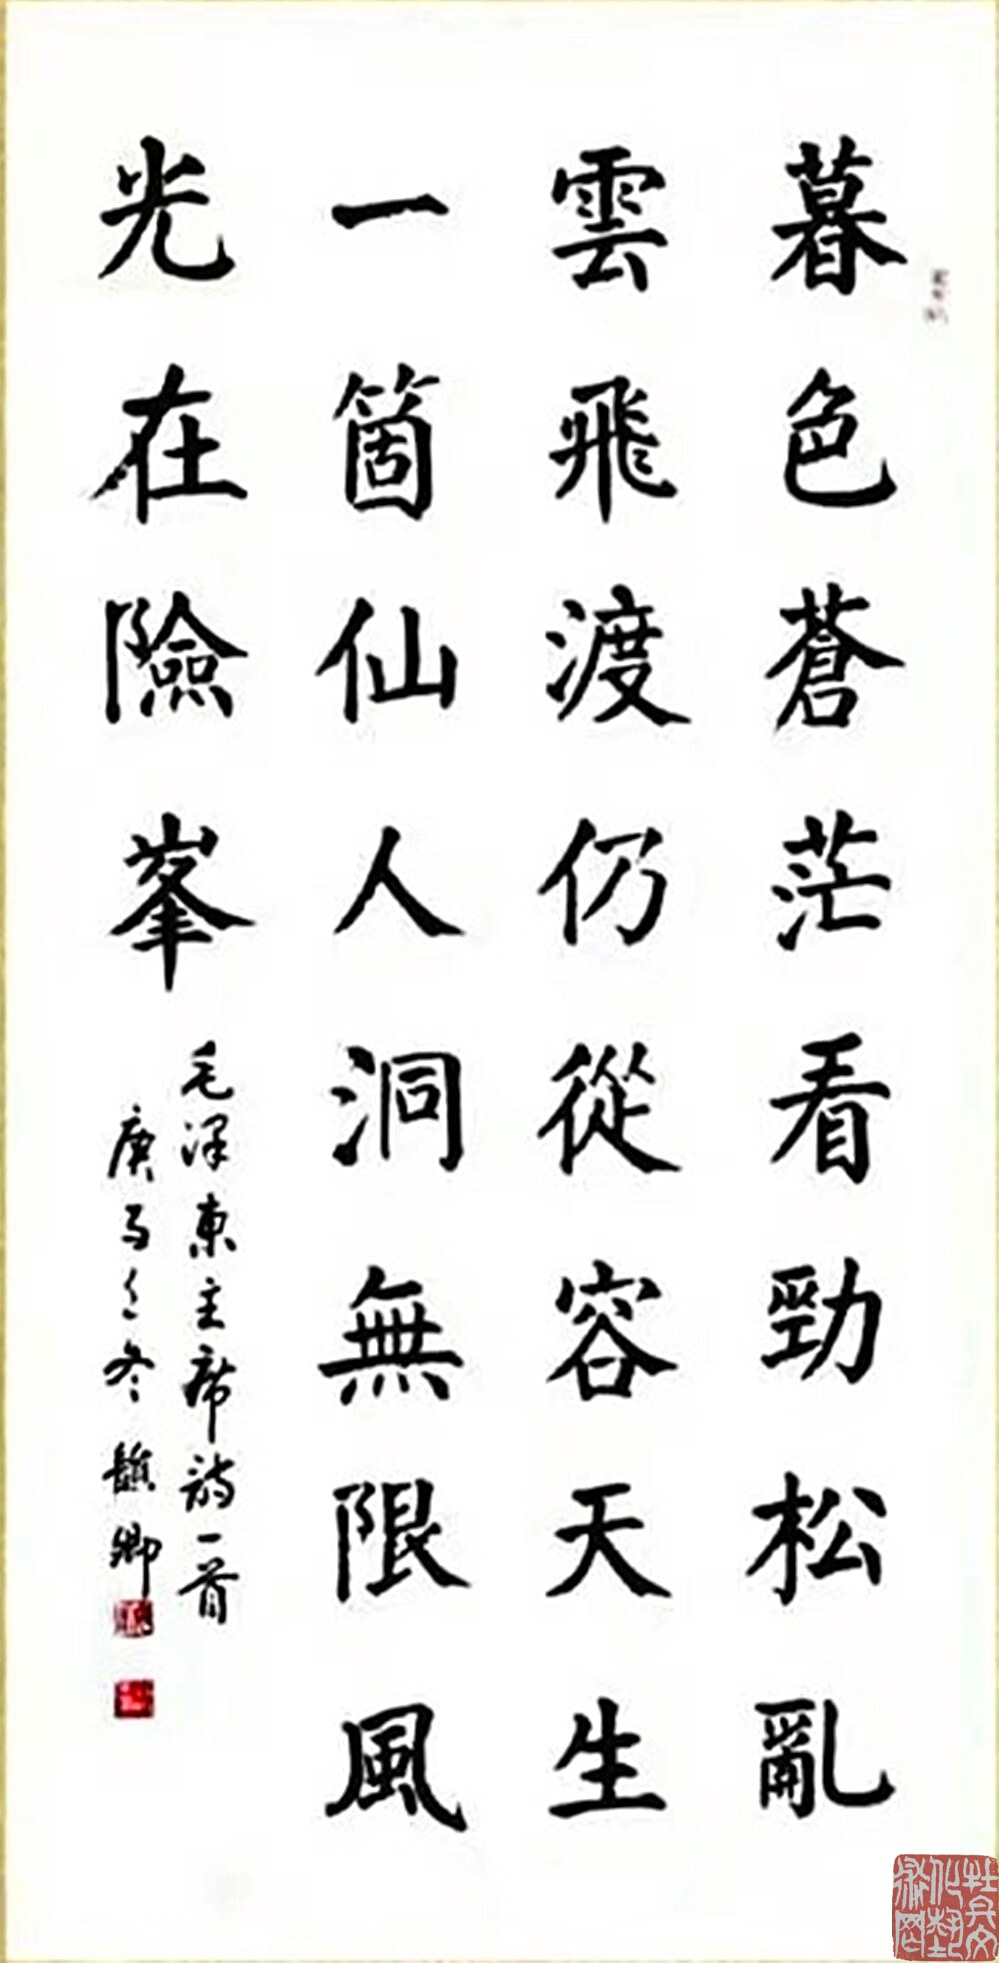 暮色蒼茫看勁松亂
雲飛渡仍從容天生
一箇仙人洞無限風
光在險峯
毛澤東主席詩一首
庚午之冬 卿